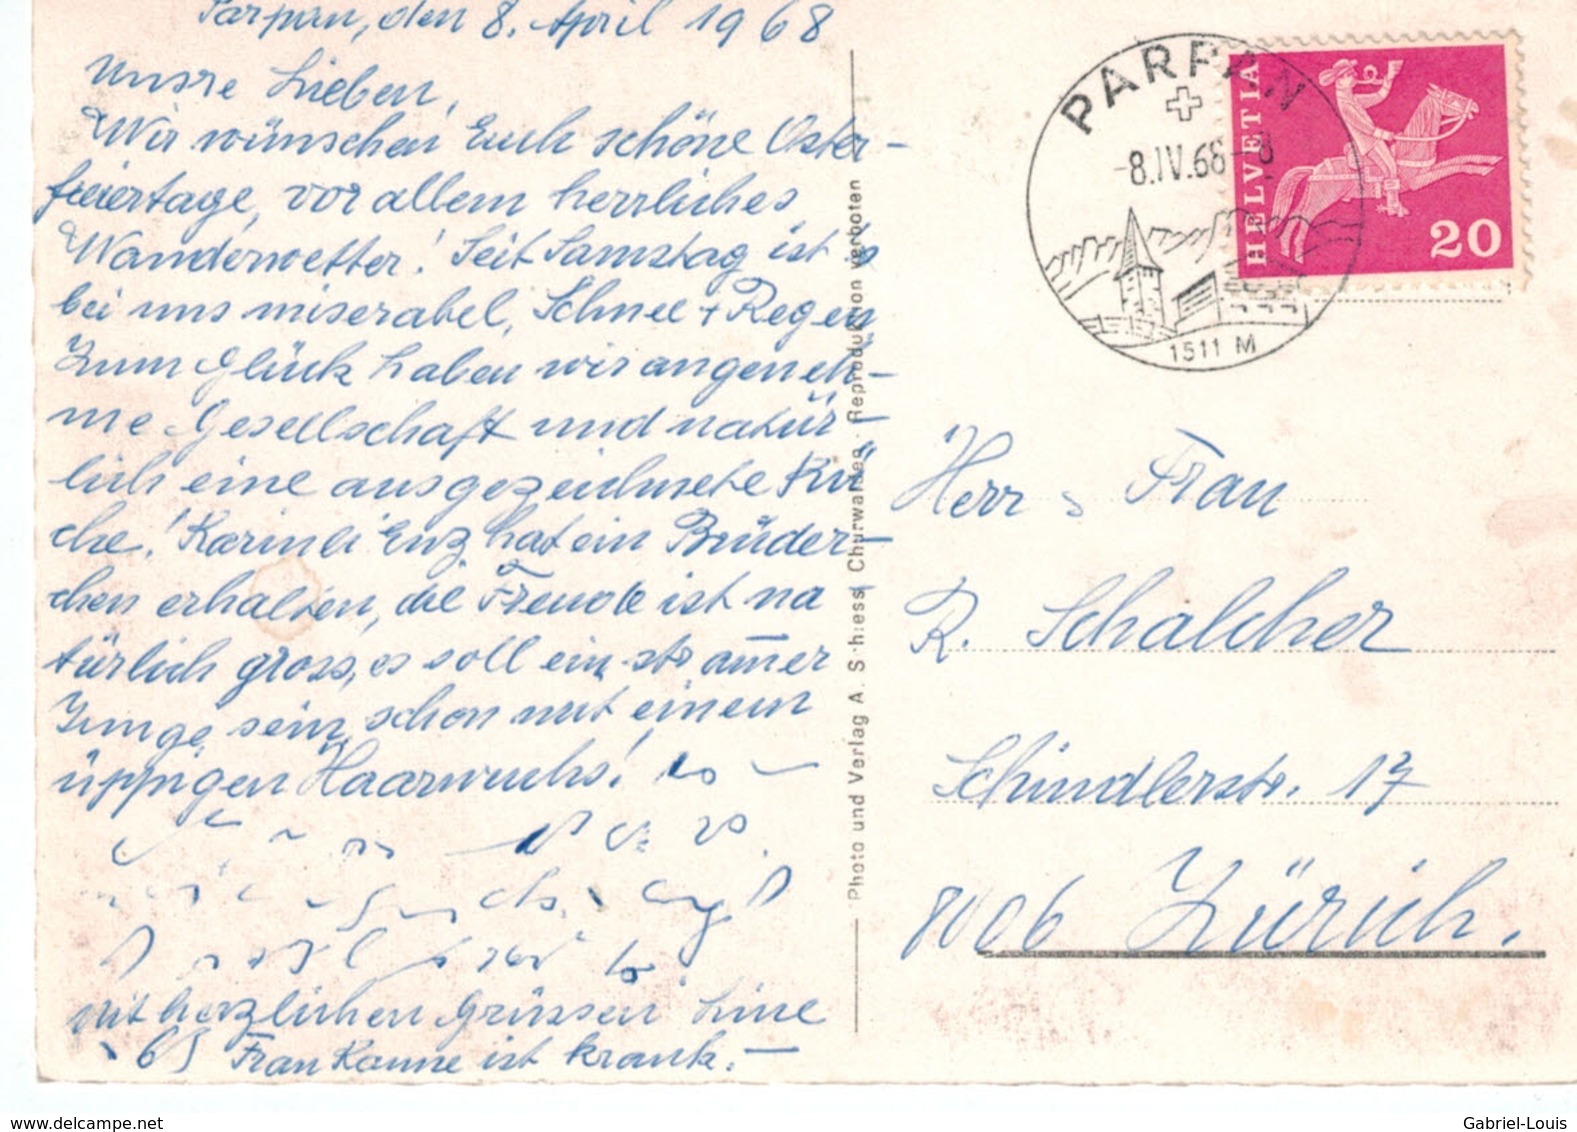 Parpan, den 8. April 1968
Unsre Lieben,
Wir wünschen Euch schöne Oster-
feiertage, vor allem herrliches
Wanderwetter! Seit Samstag ist's
bei uns miserabel, Schnee + Regen
Zum Glück haben wir angeneh-
me Gesellschaft und natür-
lich eine ausgezeichnete Kü
che! Karinli Enz hat ein Brüder-
chen erhalten, die Freude ist na
türlich gross, es soll ein strammer
Junge sein, schon mit einem
üppigen Haarwuchs!
mit herzlichen Grüssen Line
Frau Kanne ist krank. —
Photo und Verlag A. Schiess, Churwalden · Reproduktion verboten
PARPAN
-8.IV.68-8
1511 M
HELVETIA
20
Herr & Frau
R. Schalcher
Schindlerstr. 17
8006 Zürich.
www.delcampe.net
Gabriel-Louis